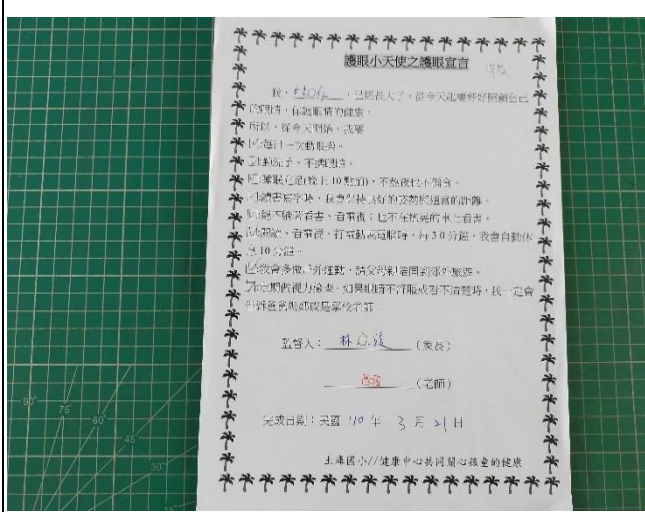 護眼小天使之護眼宣言
我，，已經長大了，從今天起要好好照顧自己
的眼睛，保護眼睛的健康。
所以，從今天開始，我要
每日一次動眼操。
勤洗手、不揉眼睛。
睡眠充足(晚上10點前)，不熬夜也不偏食。
讀書寫字時，我會保持良好的姿勢與適當的距離。
絕不躺著看書、看電視；也不在搖晃的車上看書。
閱讀、看電視、打電動或電腦時，每30分鐘，我會自動休
息10分鐘。
我會多做戶外運動，請父母親陪同到郊外旅遊。
定期做視力檢查，如果眼睛不舒服或看不清楚時，我一定會
告訴爸爸媽媽或是學校老師
監督人：林（家長）
（老師）
完成日期：民國 110 年 3 月 21 日
土庫國小//健康中心共同關心孩童的健康
90°
75°
60°
45°
30°